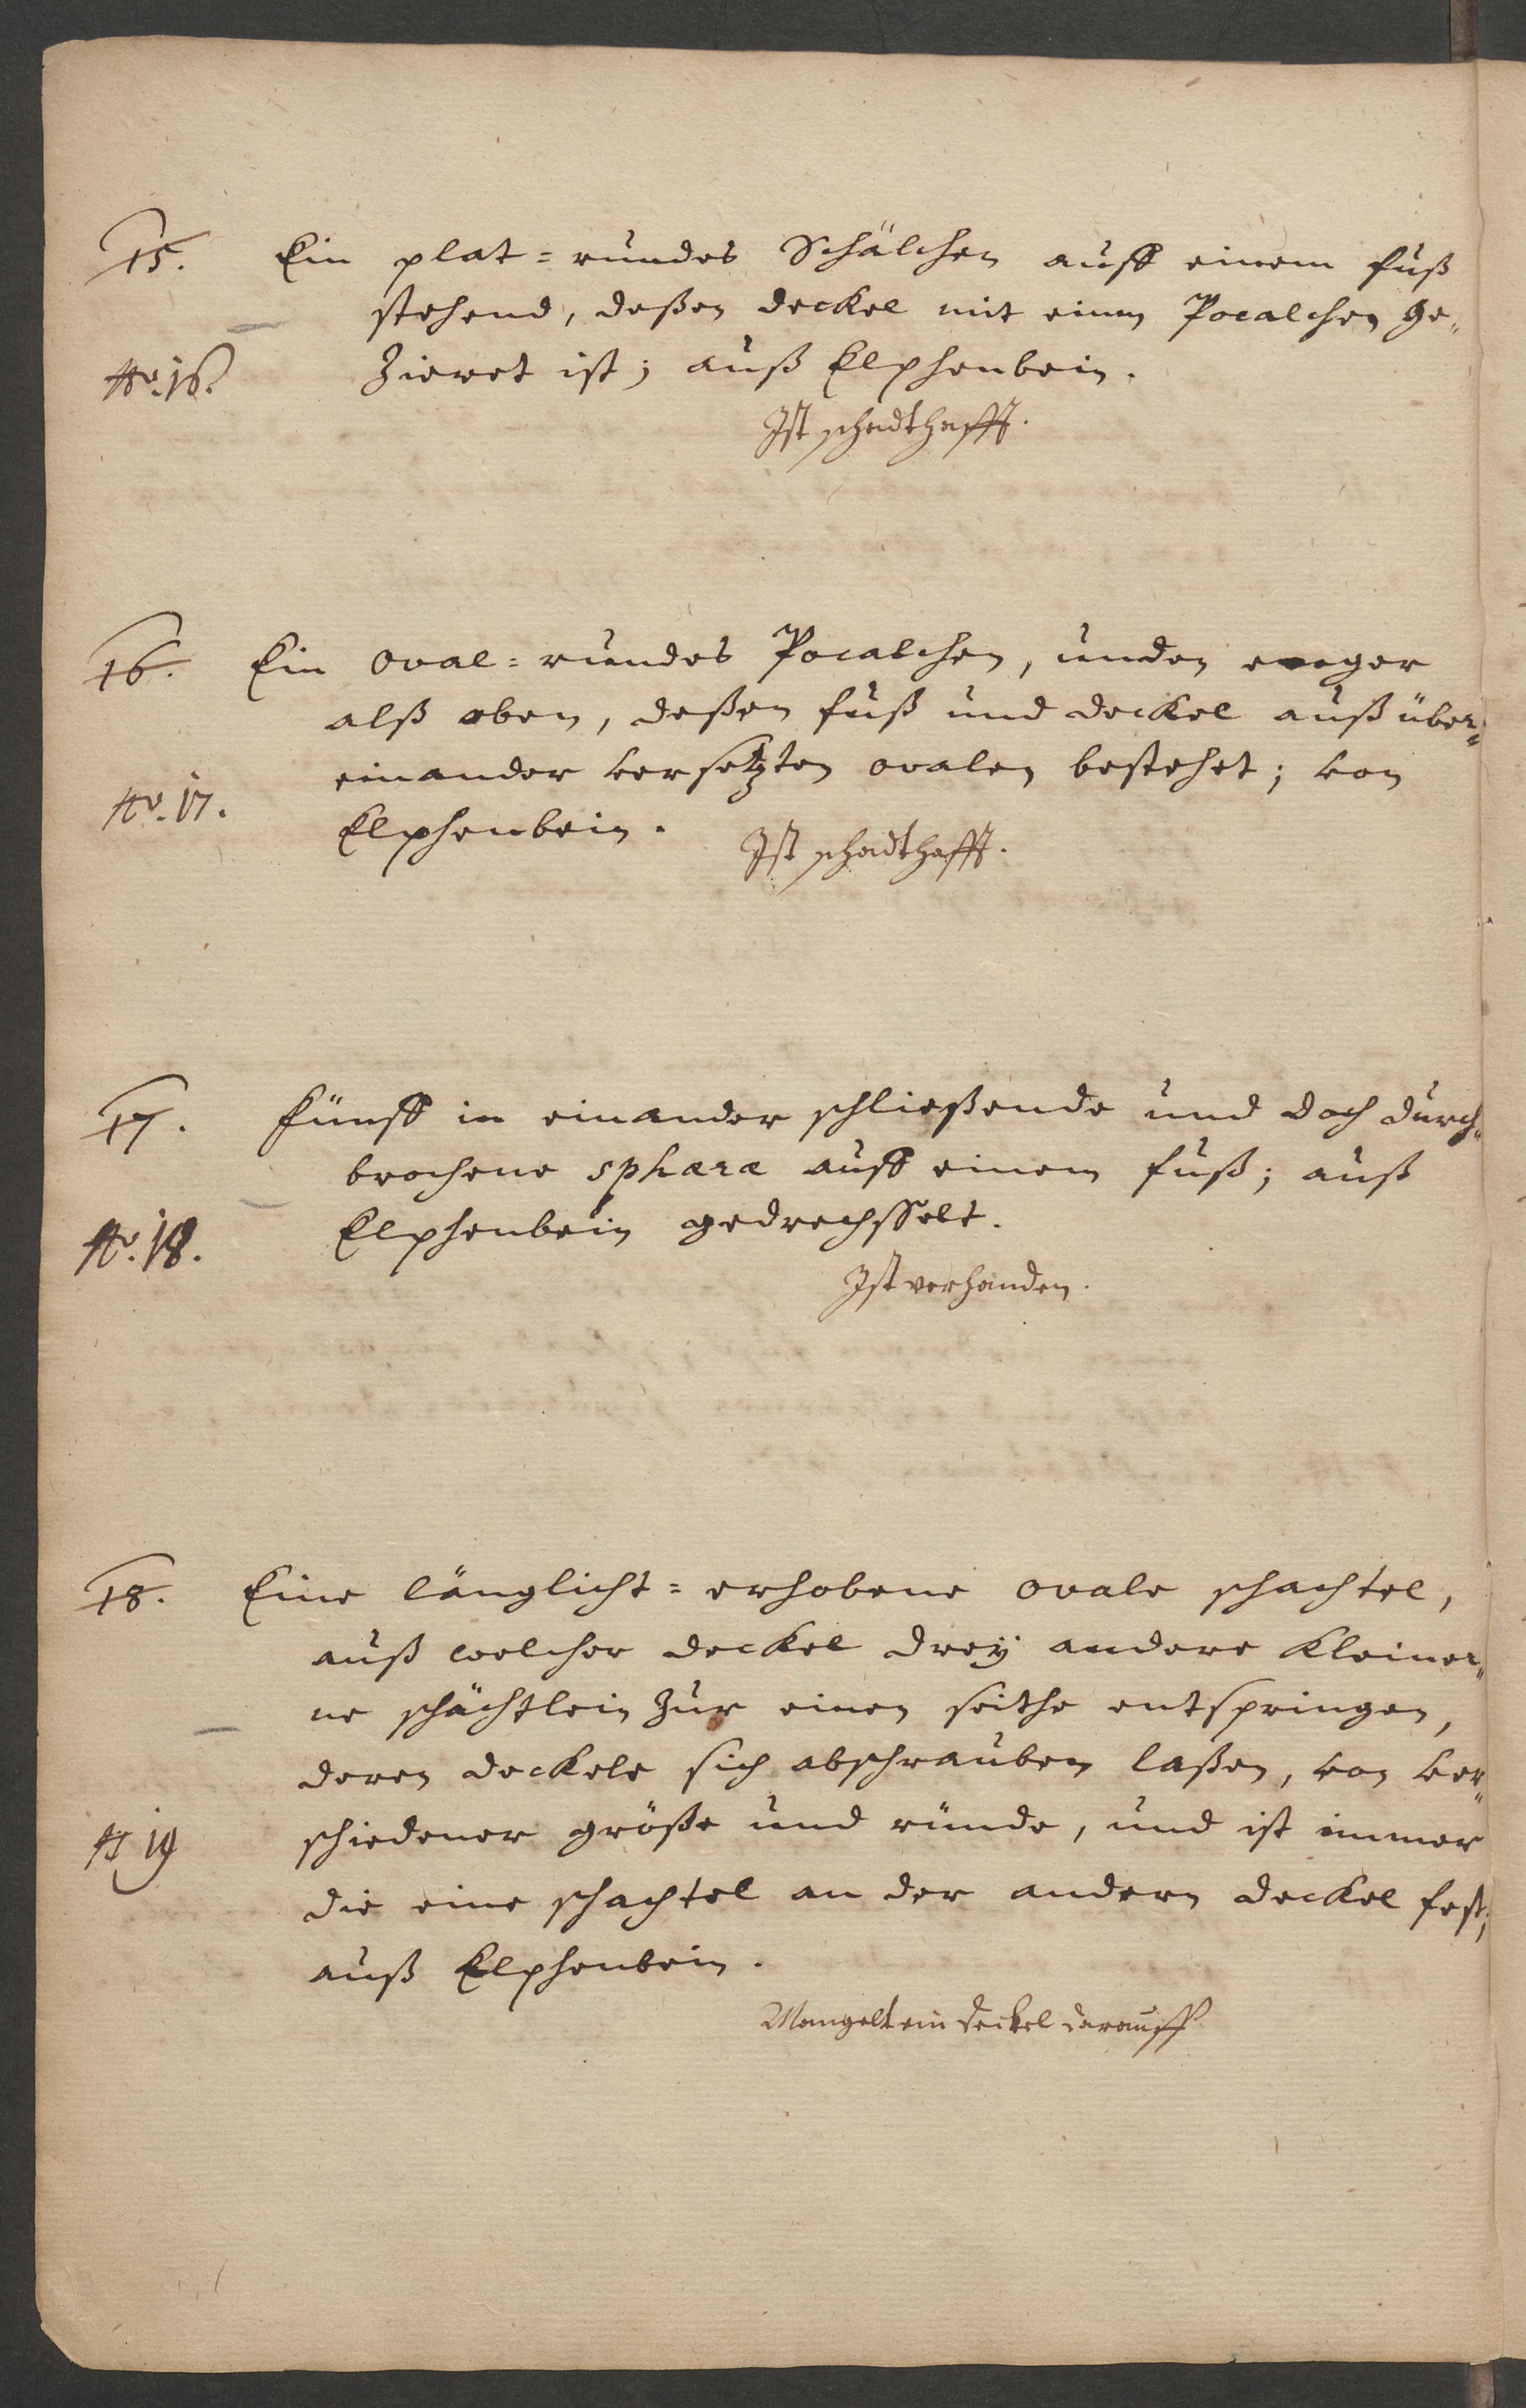 15. Ein plat=rundes Schälchen auff einem fuß
stehend, deßen deckel mit einem Pocalchen ge„
No. 16. zieret ist; auß Elphenbein.
Ist schadthafft.
16. Ein oval=rundes Pocalchen, unden enger
alß oben, deßen fuß und deckel auß über„
einander versetzten ovalen bestehet; von
No. 17.
Elphenbein. Ist schadthafft.
17. Fünff in einander schließende und doch durch„
brochene sphæræ auff einem fuß; auß
No. 18. Elphenbein gedrechsselt.
Ist vorhanden.
18. Eine länglicht=erhobene ovale schachtel,
auß welcher deckel drey andere kleiner„
ne schächtlein zur einen seithe entspringen,
deren deckele sich abschrauben laßen, von ver„
No 19 schiedener größe und ründe, und ist immer
die eine schachtel an der andern deckel fest;
auß Elphenbein.
Mangelt ein deckel darauff